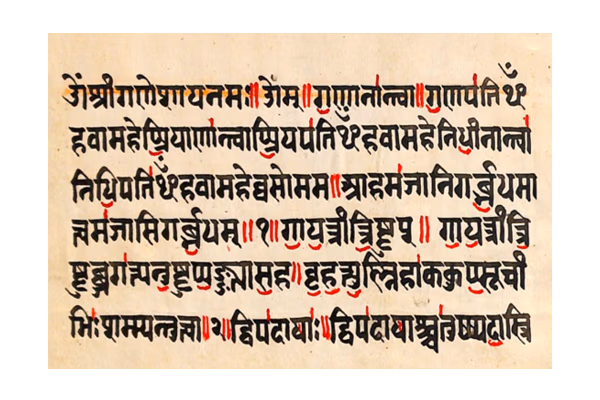 ॐश्रीगणेशायनमः॥ॐम्॥गणानान्त्वा॥गणपतिꣳ
हवामहेप्प्रियाणान्त्वाप्प्रियपतिꣳहवामहेनिधीनान्त्वा
निधिपतिꣳहवामहेव्वसोमम॥आहमजानिगर्ब्भधमा
त्त्वमजासिगर्ब्भधम्॥१॥गायत्त्रीत्रिष्टुप्॥गायत्त्रीत्रि
ष्टुब्जगत्यनुष्टुप्पङ्क्त्यासह॥बृहत्युष्ण्णिहाककुप्प्सूची
भिःशम्म्यन्तुत्वा॥२॥द्विपदायाः॥द्विपदायाश्चतुष्ष्पदास्त्रि